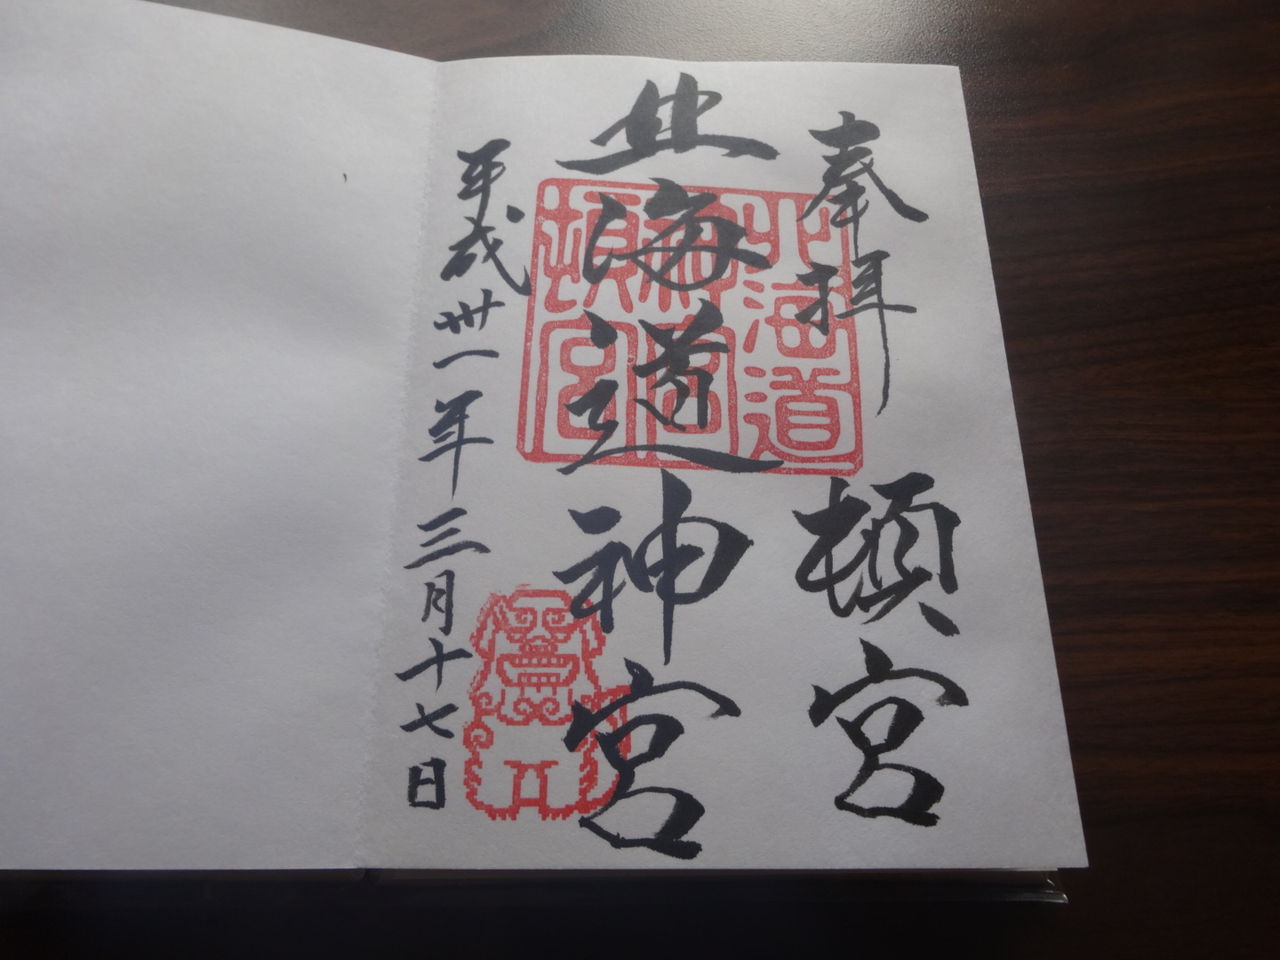 奉拝 頓宮
北海道神宮
平成卅一年三月十七日
北海道
神宮
頓宮